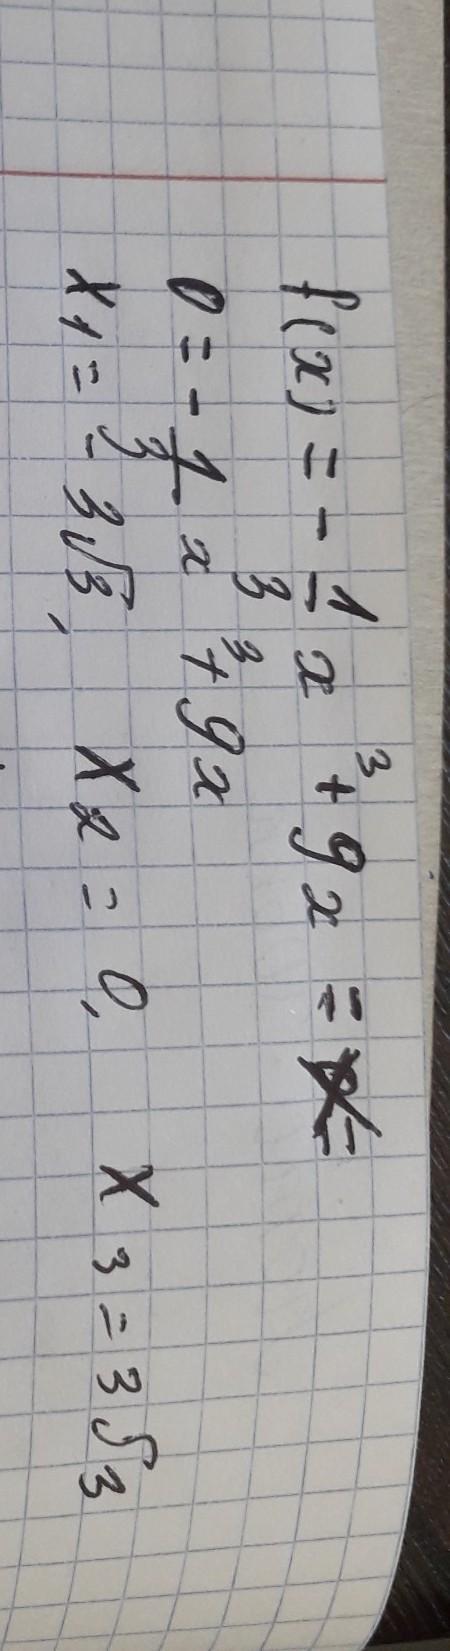 f(x) = - 1/3 x³ + 9x = 
0 = - 1/3 x³ + 9x
x₁ = - 3√3, x₂ = 0, x₃ = 3√3